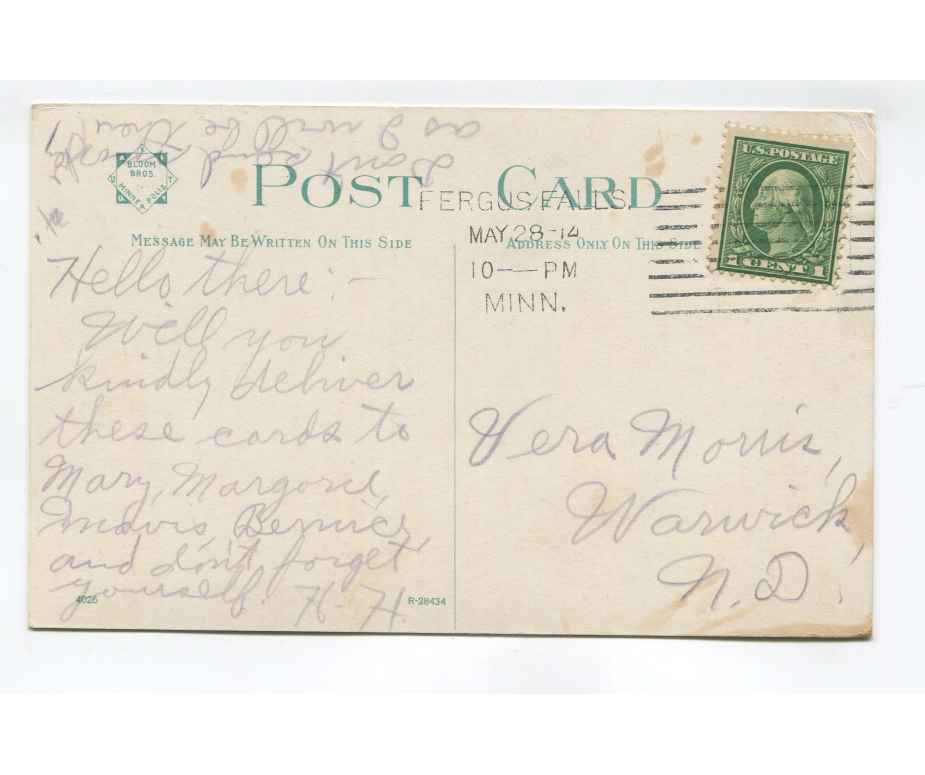 BLOOM
BROS.
MINNEAPOLIS
POST CARD
MESSAGE MAY BE WRITTEN ON THIS SIDE
ADDRESS ONLY ON THIS SIDE
U.S. POSTAGE
1 CENT 1
FERGUS FALLS.
MAY 28-14
10 — PM
MINN.
Hello there :-
Will you
kindly deliver
these cards to
Mary, Margorie,
Mavis, Bernice,
and don't forget
yourself. H. H.
Don't send
as I will be there
Vera Morris,
Warwick,
N.D.
4026
R-28434